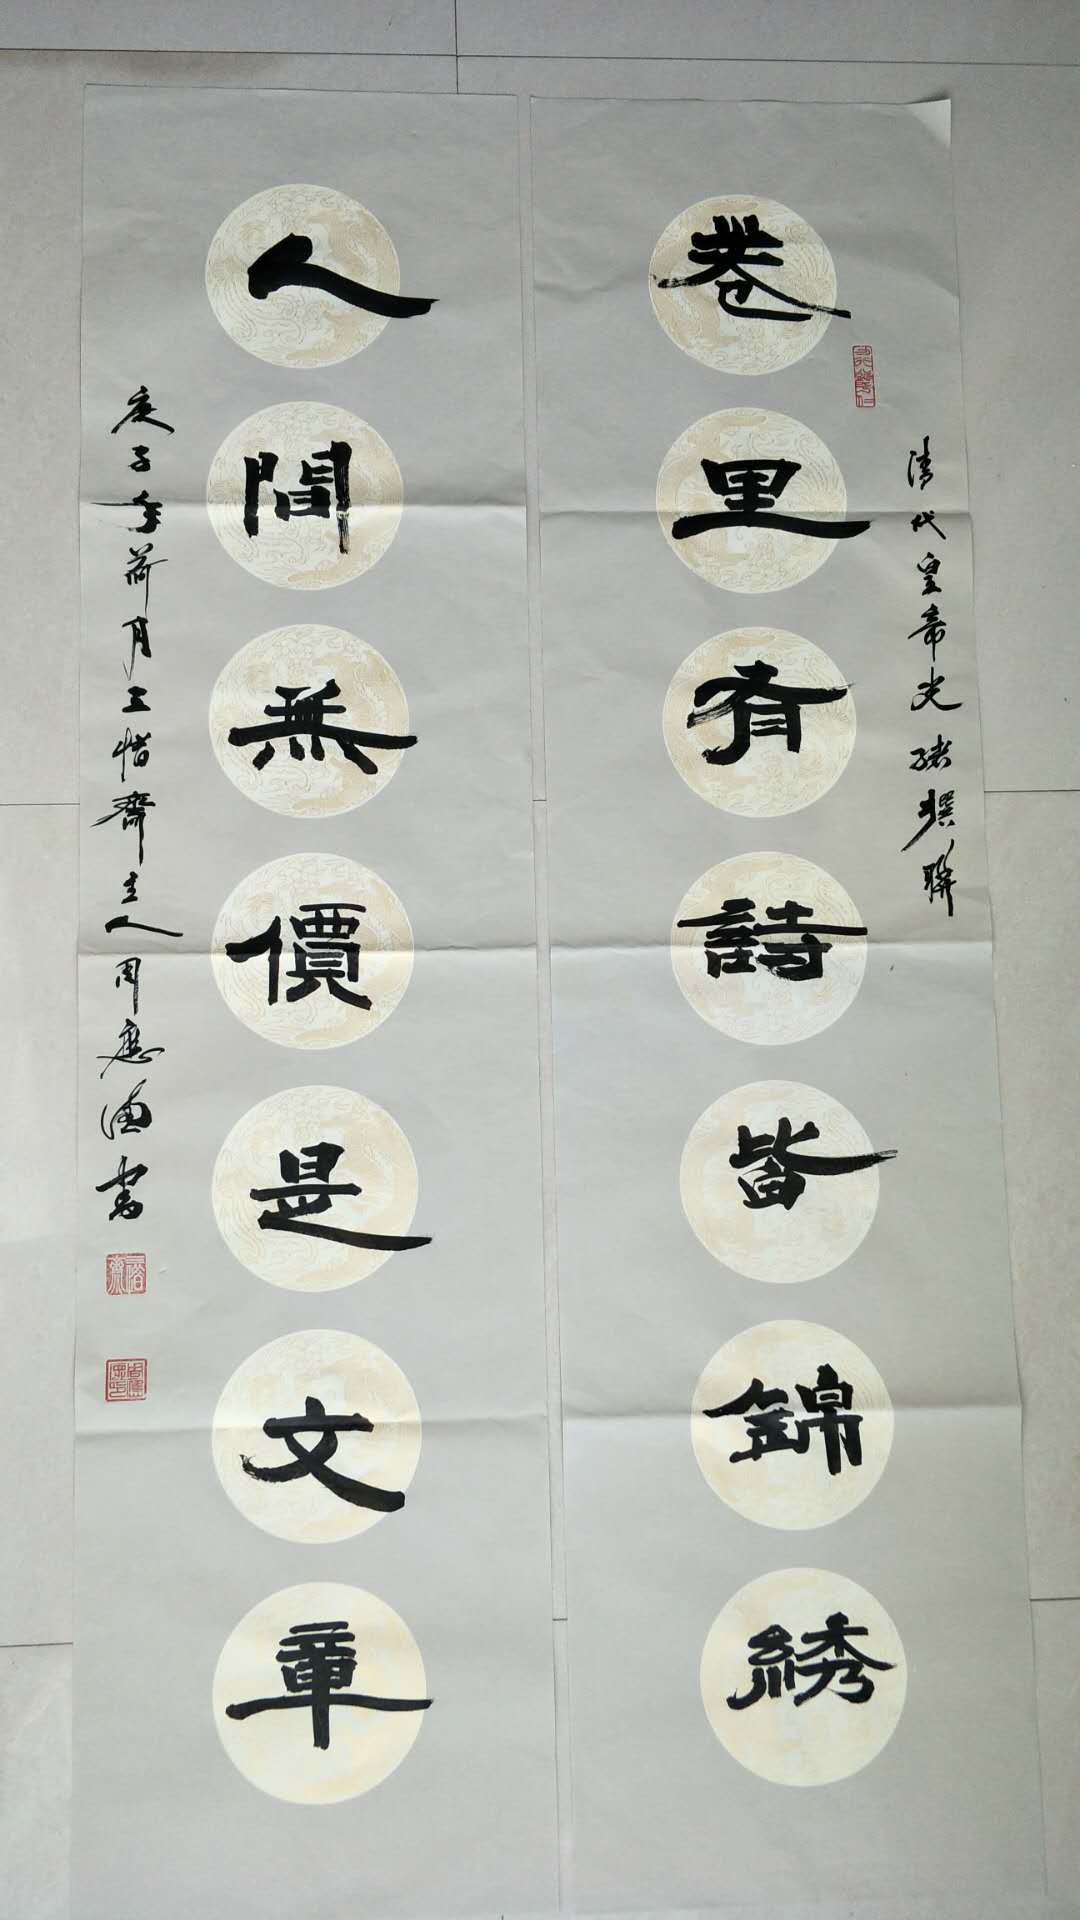 清代皇帝光绪撰聯
卷里有詩皆錦綉
人間無價是文章
庚子年荷月三惜齋主人周應德書
三惜齋